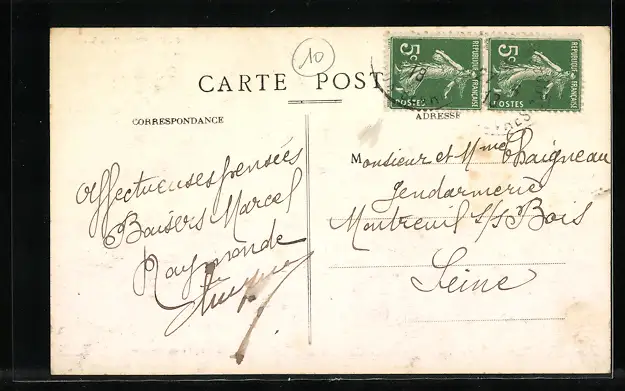 10
CARTE POST
CORRESPONDANCE
ADRESSE
5c
REPUBLIQUE FRANÇAISE
POSTES
5c
REPUBLIQUE FRANÇAISE
POSTES
Affectueuses pensées
Baisers Marcel
Raymonde
Monsieur et Mme Chaigneau
Gendarmerie
Montreuil s/s Bois
Seine